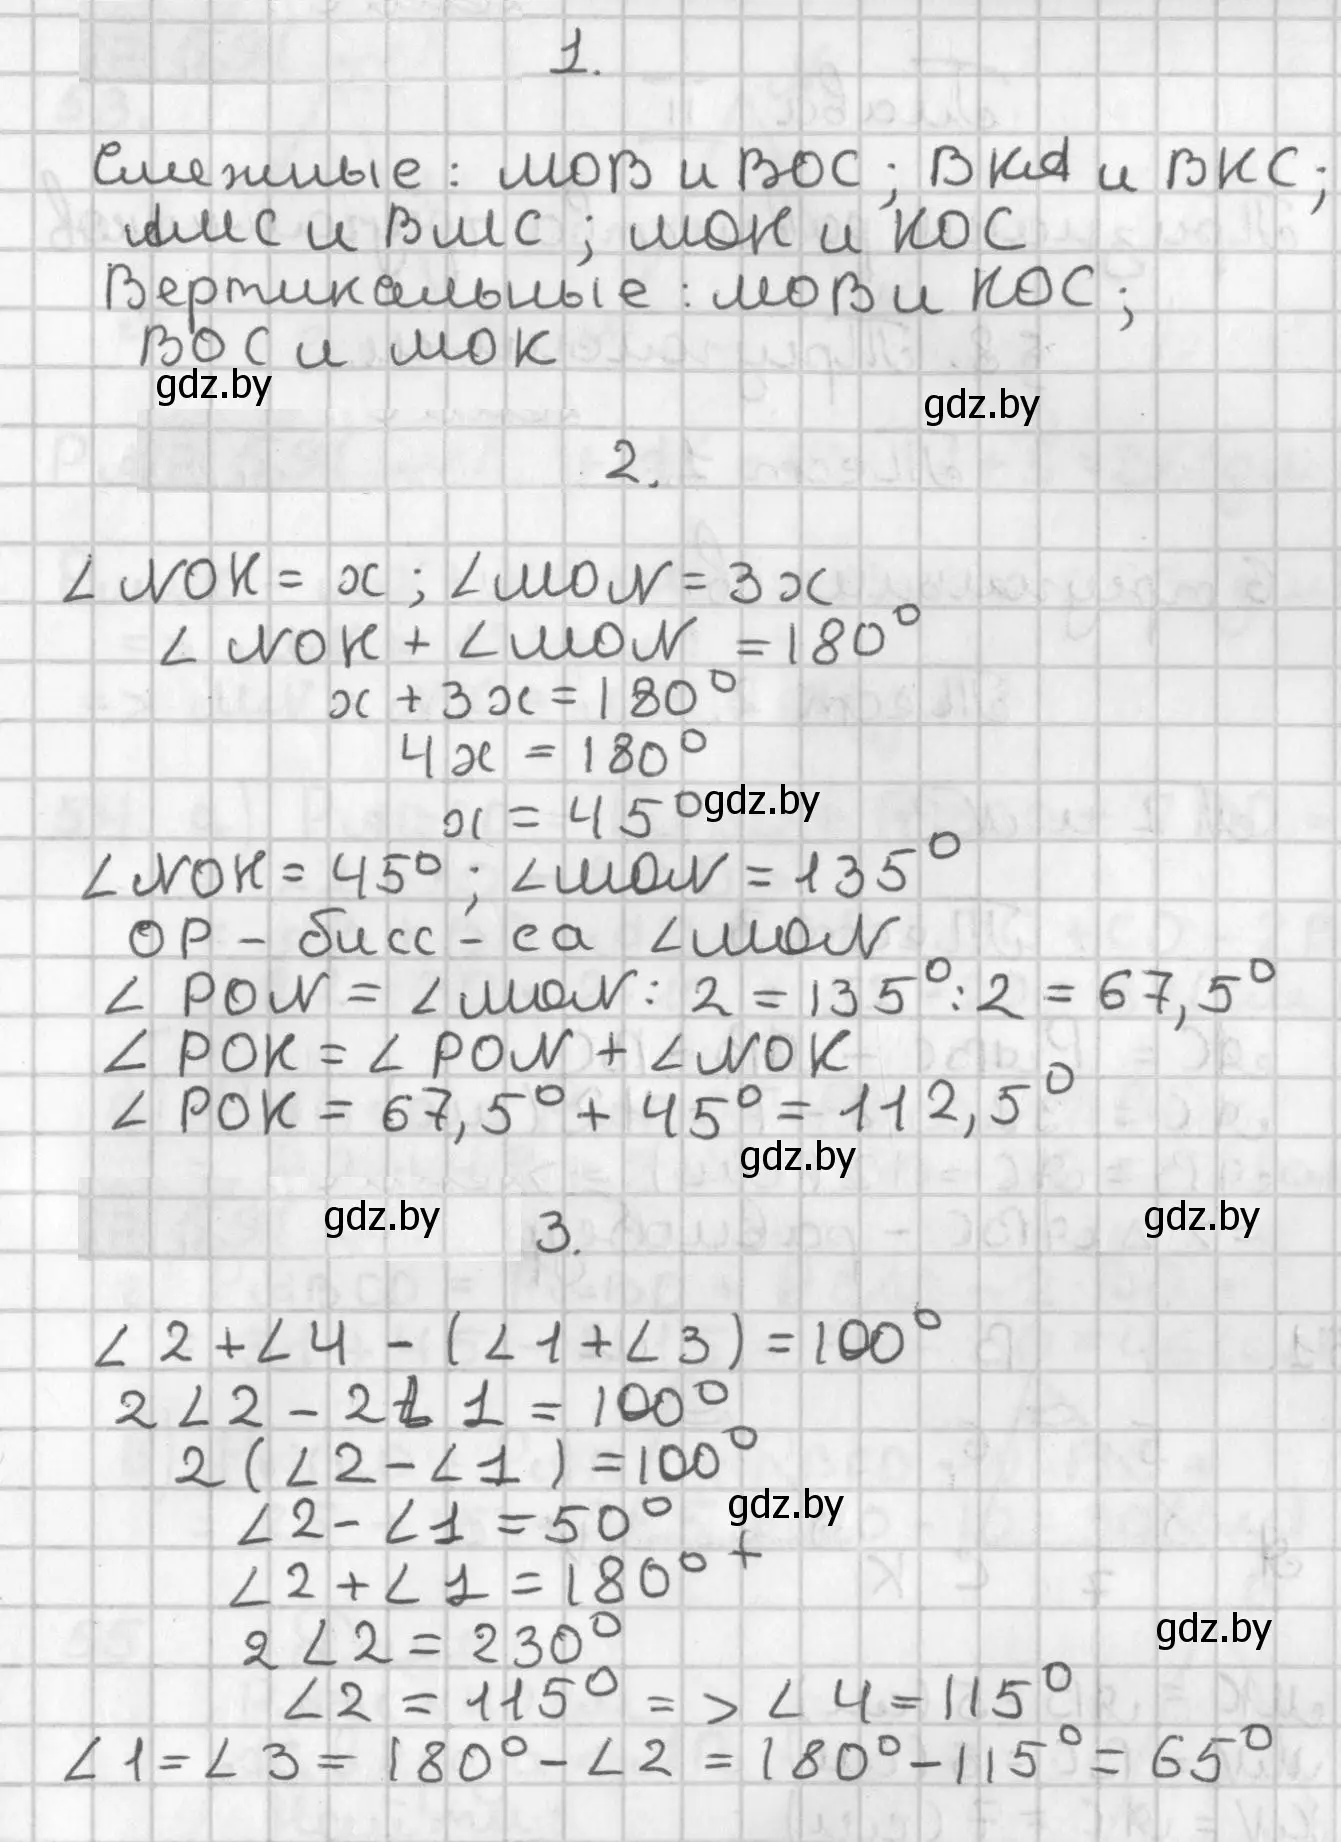 1.
Смежные: МОВ и ВОС; ВКА и ВКС;
АМС и ВМС; МОК и КОС
Вертикальные: МОВ и КОС;
ВОС и МОК
gdz.by
gdz.by
2.
∠NOK = x; ∠MON = 3x
∠NOK + ∠MON = 180°
x + 3x = 180°
4x = 180°
x = 45°
gdz.by
∠NOK = 45°; ∠MON = 135°
OP - бисс-са ∠MON
∠PON = ∠MON : 2 = 135° : 2 = 67,5°
∠POK = ∠PON + ∠NOK
∠POK = 67,5° + 45° = 112,5°
gdz.by
gdz.by
3.
gdz.by
∠2 + ∠4 - (∠1 + ∠3) = 100°
2∠2 - 2∠1 = 100°
2(∠2 - ∠1) = 100°
gdz.by
∠2 - ∠1 = 50°
+
∠2 + ∠1 = 180°
2∠2 = 230°
gdz.by
∠2 = 115° => ∠4 = 115°
∠1 = ∠3 = 180° - ∠2 = 180° - 115° = 65°